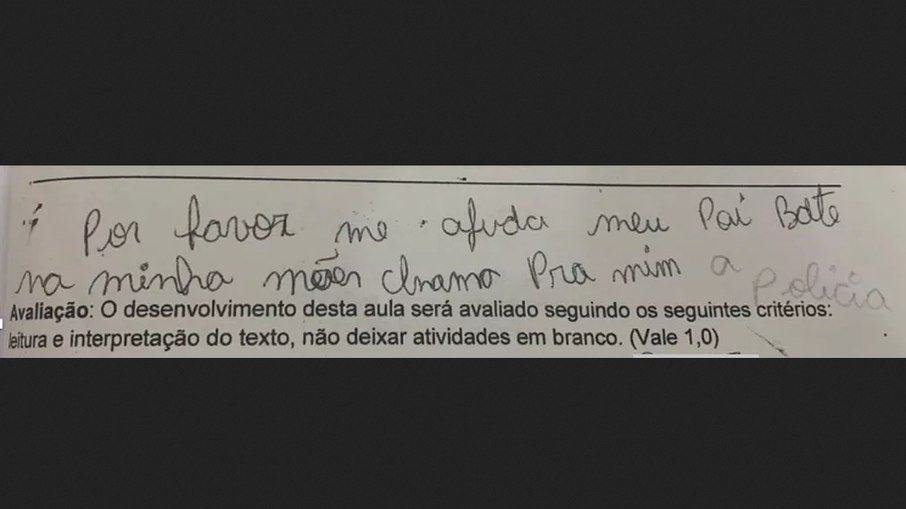 Por favor me ajuda meu Pai Bate
na minha mães chama Pra mim a Policia
Avaliação: O desenvolvimento desta aula será avaliado seguindo os seguintes critérios:
leitura e interpretação do texto, não deixar atividades em branco. (Vale 1,0)